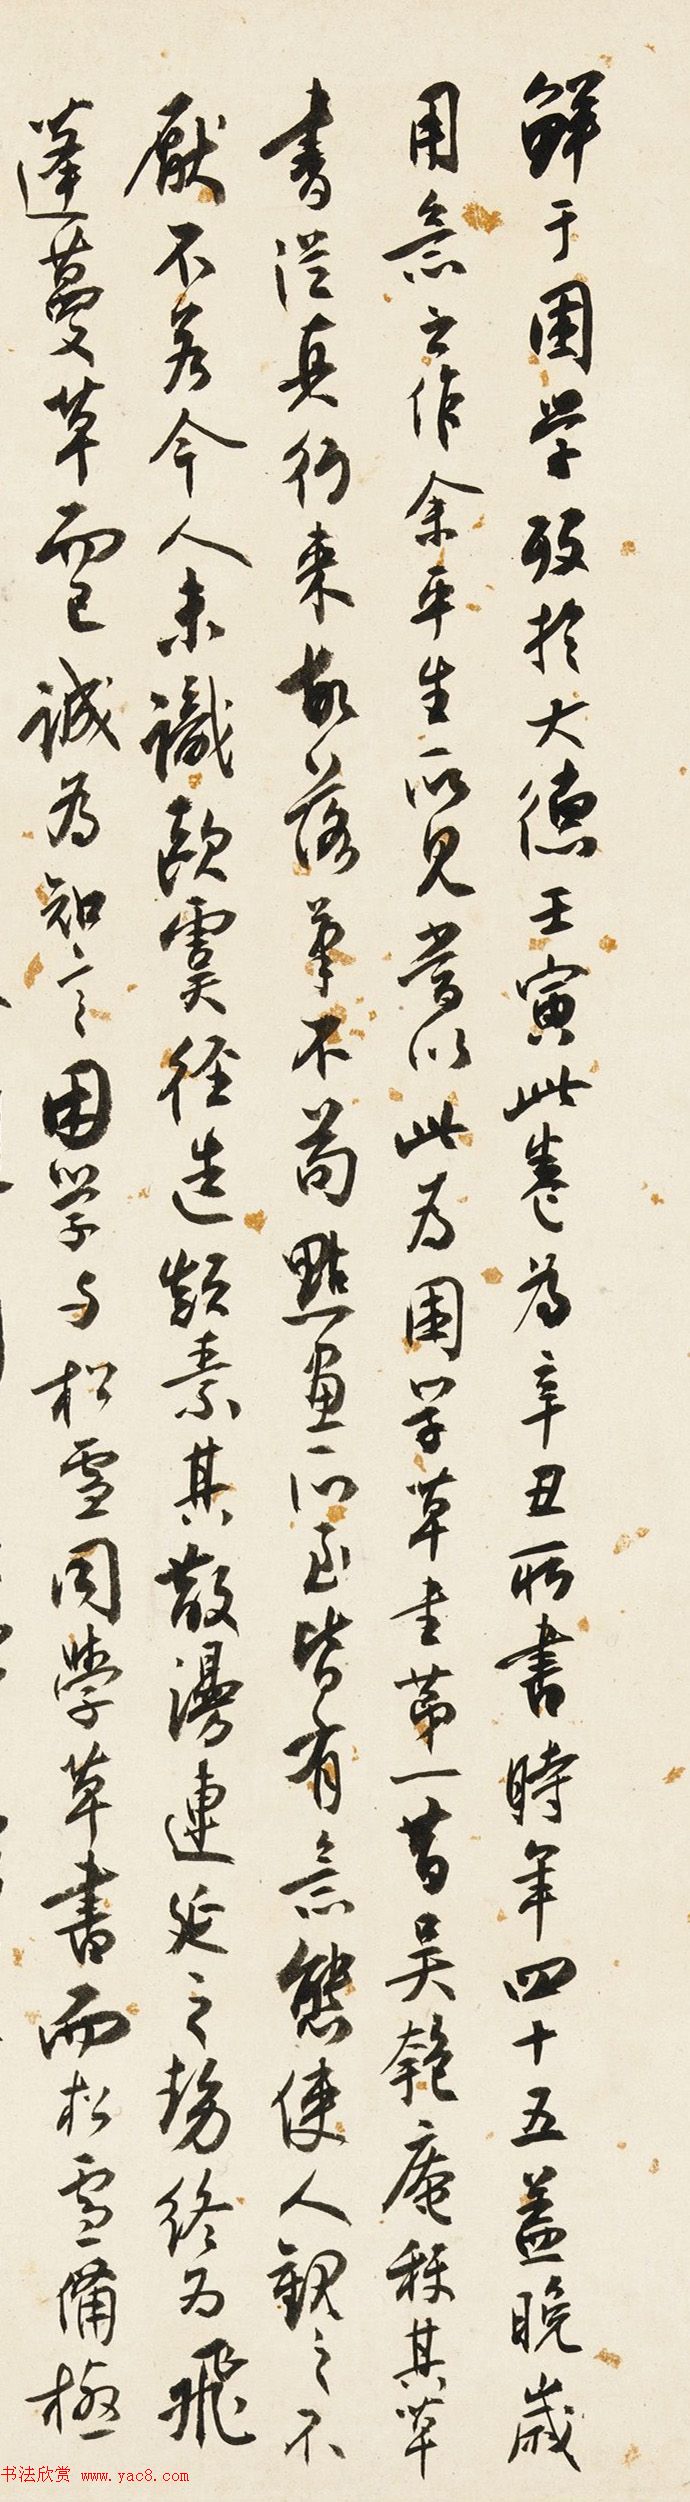 鮮于困学歿於大德壬寅此卷為辛丑所書時年四十五蓋晚歲
用意之作余平生所見當以此為困学草書第一昔吴匏庵稱其草
書從真行來故落筆不苟點畫所至皆有意態使人觀之不
厭不若今人未識歐虞徑造顛素其散漫連延之勢終为飛
蓬蔓草而已誠为知言困学与松雪同學草書而松雪備極
书法欣赏 www.yac8.com